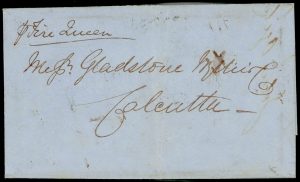 p Fire Queen
Messrs. Gladstone Wyllie & Co
Calcutta